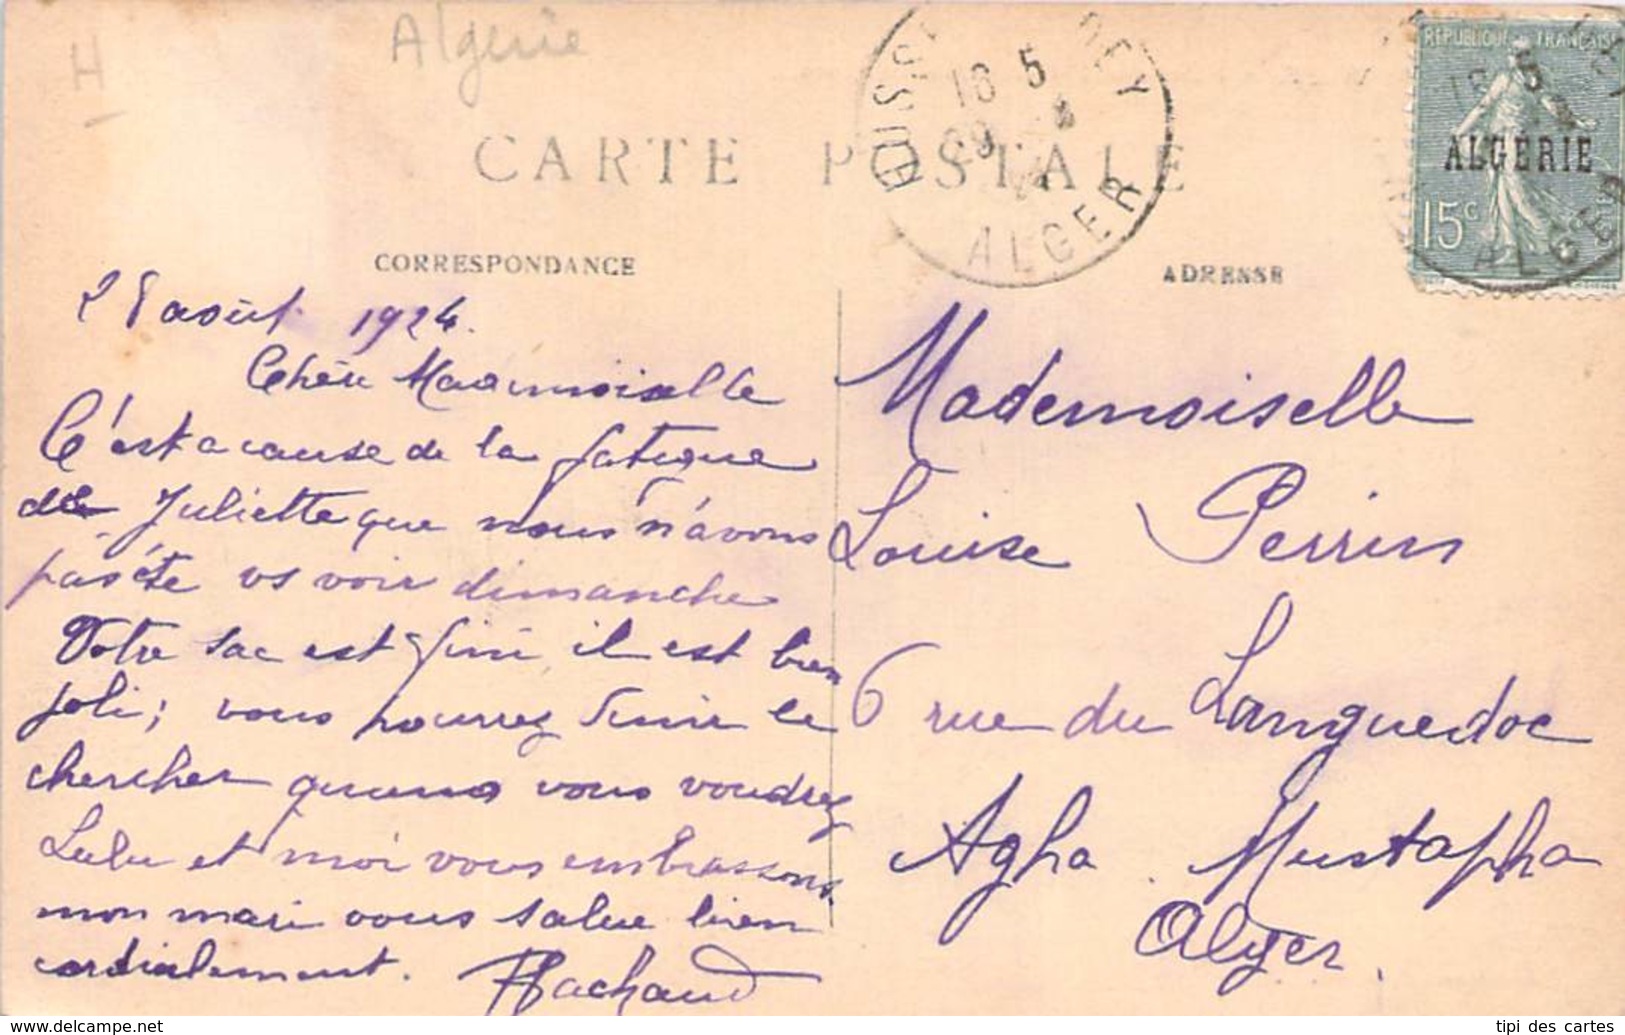 H
Algerie
CARTE POSTALE
HUSSEIN DEY
16 5
29 8
24
ALGER
REPUBLIQUE FRANCAISE
ALGÉRIE
15c
ALGER
CORRESPONDANCE
ADRESSE
28 août 1924.
Chère Mademoiselle
C'est a cause de la fatigue
de Juliette que nous n'avons
pas été vs voir dimanche
Votre sac est fini, il est bien
joli; vous pourrez venir le
chercher quand vous voudrez
Lulu et moi vous embrassons.
mon mari vous salue bien
cordialement. Hachaud
Mademoiselle
Louise Perrin
6 rue du Languedoc
Agha. Mustapha
Alger.
www.delcampe.net
tipi des cartes